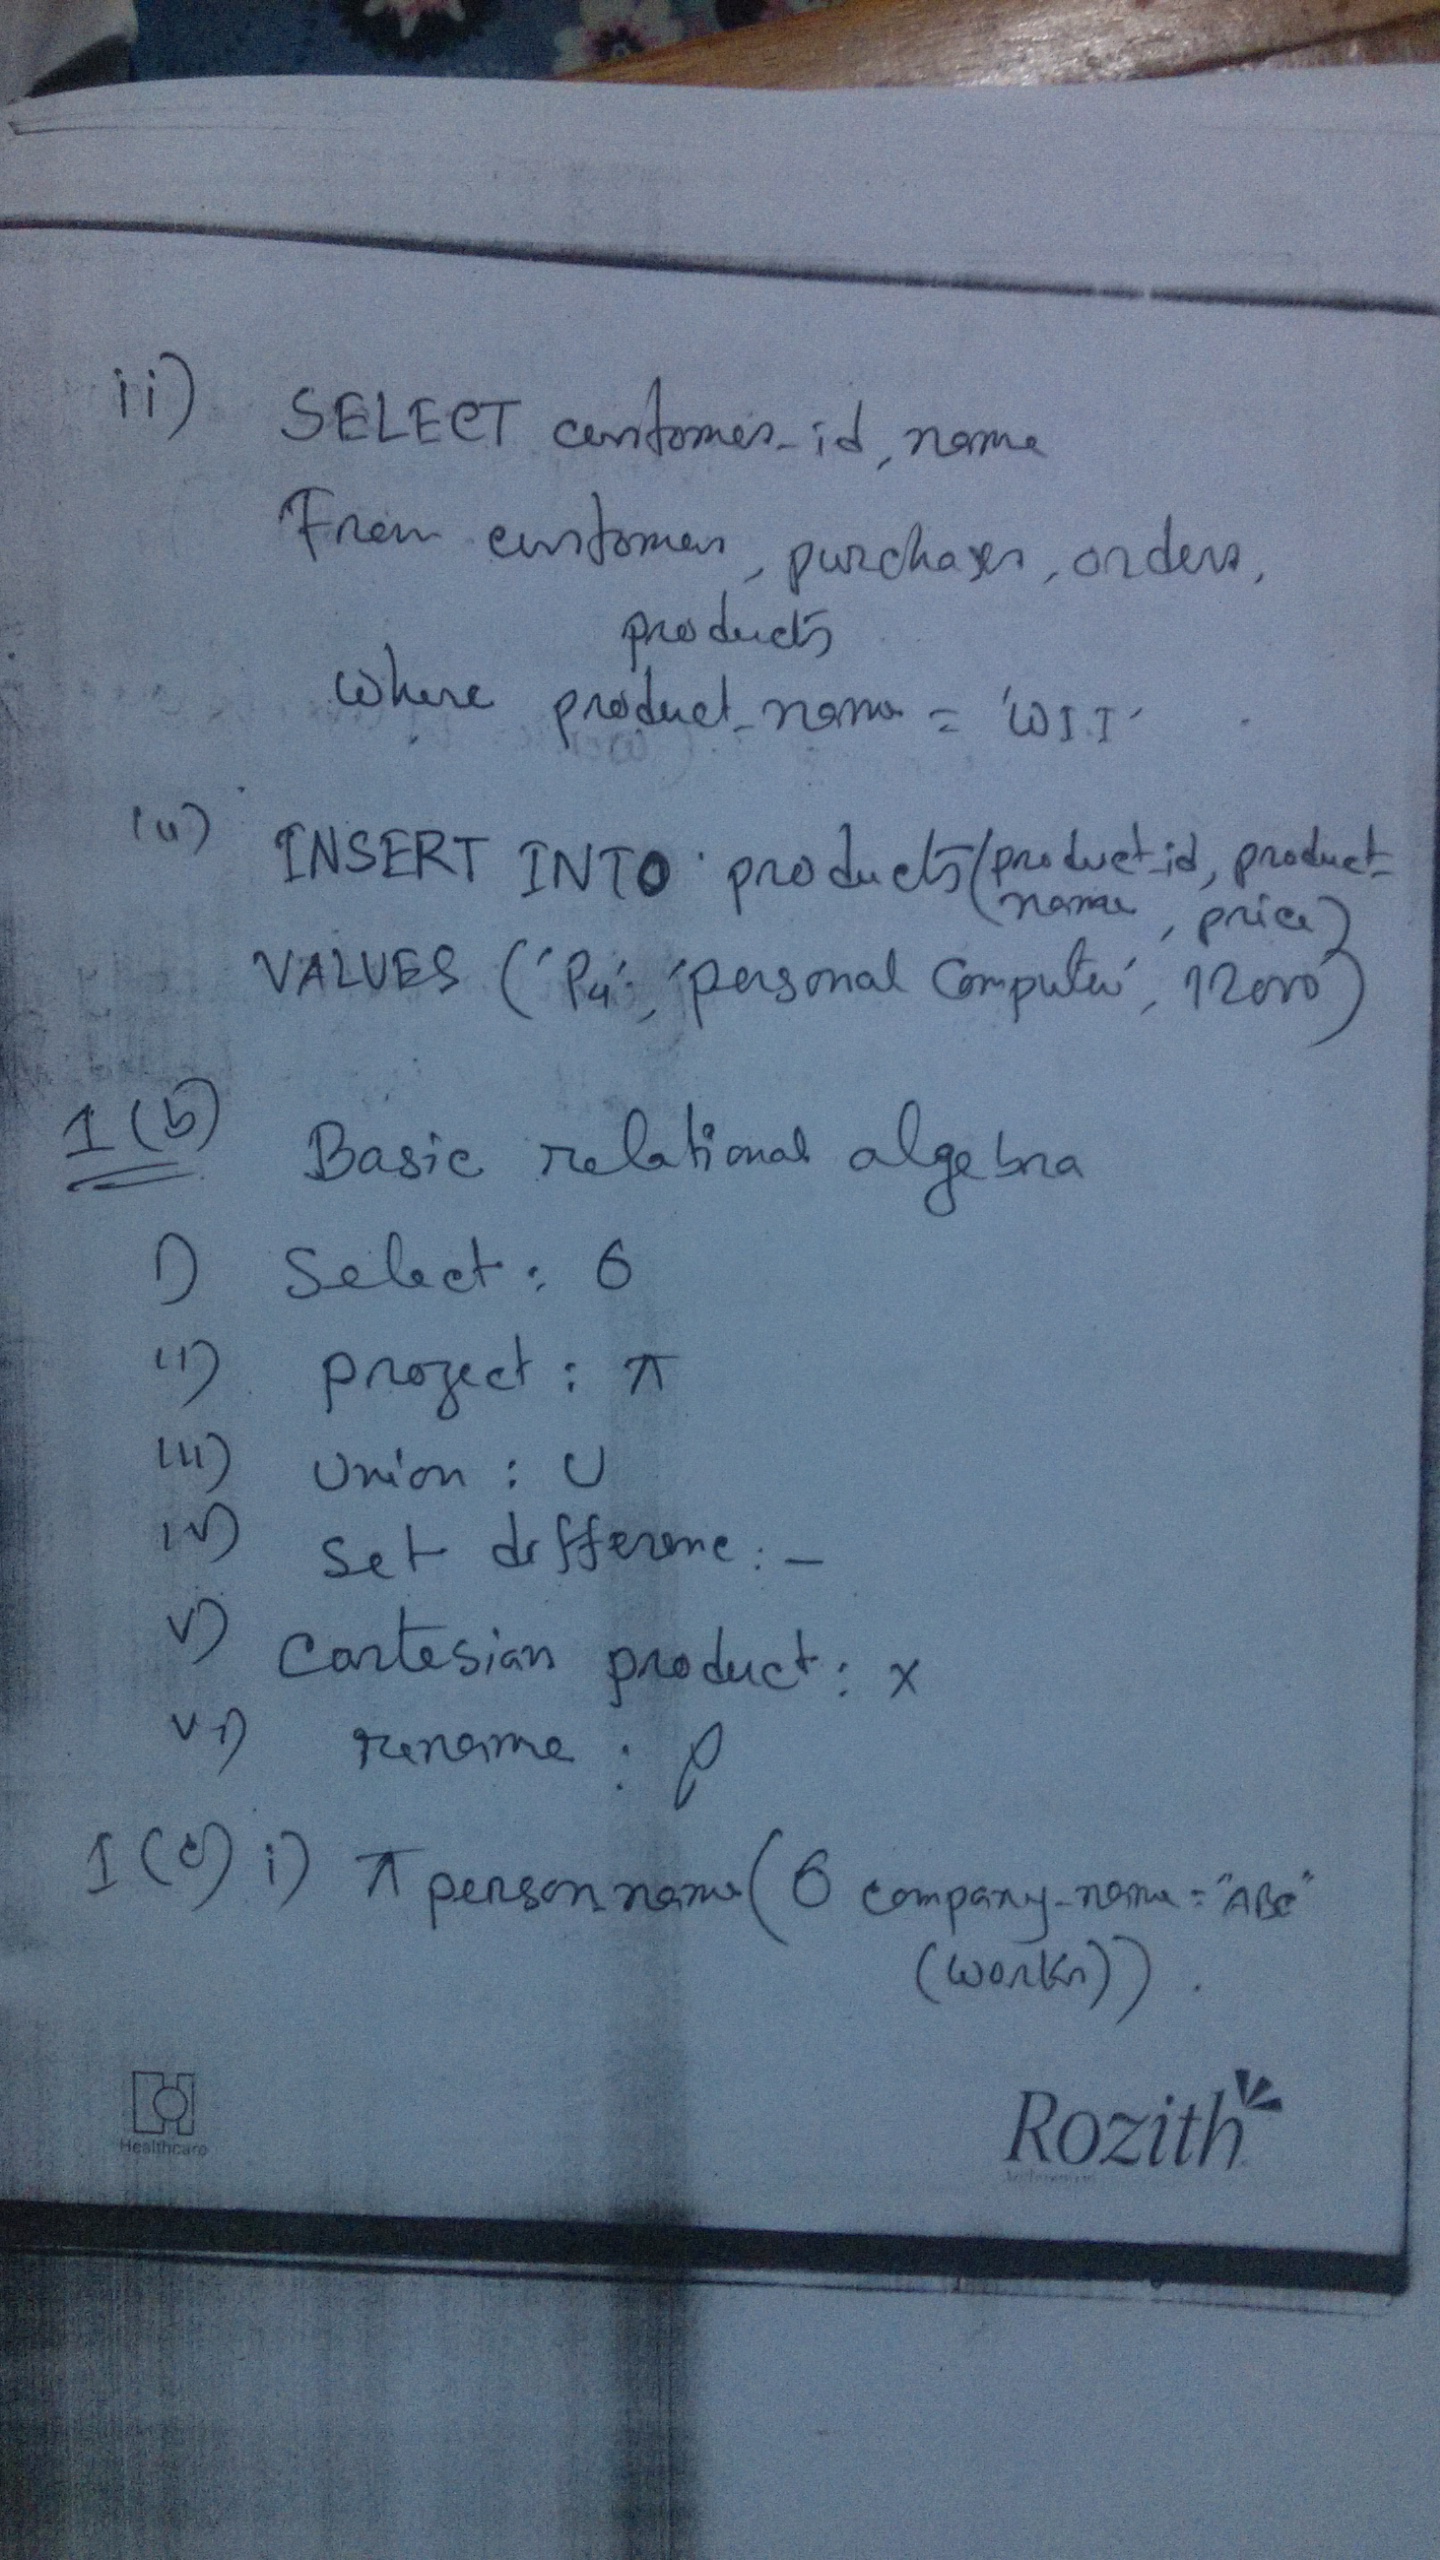 ii) SELECT customer_id, name
From customers, purchases, orders,
products
where product_name = 'WII'
INSERT INTO products(product_id, product_
name, price)
VALUES ('P4', 'personal Computer', 12000)
1(b) Basic relational algebra
i) Select : σ
ii) project : π
iii) union : ∪
iv) set difference : –
v) Cartesian product : x
vi) rename : ρ
1(c) i) π person_name (σ company_name = "ABC"
(works)).
Healthcare
Rozith